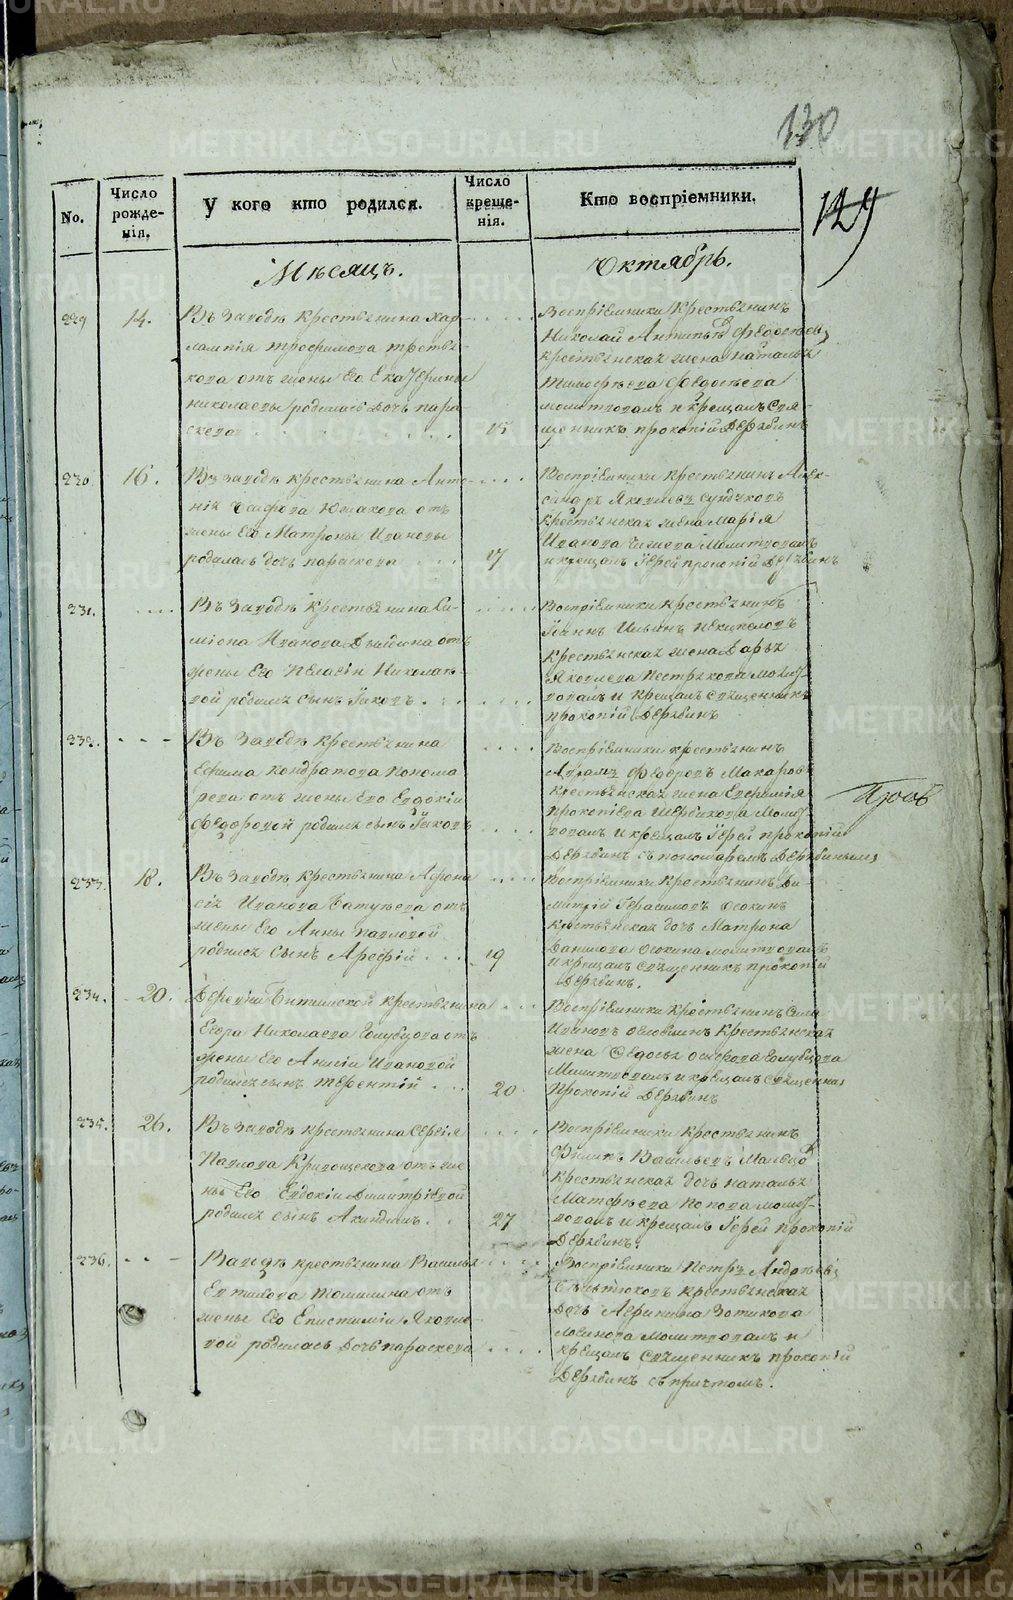 130
129
No.
Число рожде-нія.
У кого кто родился.
Число креще-нія.
Кто воспріемники.
Мѣсяцъ.
Октябрь.
229
14.
Въ Заводѣ крестьянина Хар-
лампія Трофимова Третья-
кова отъ жены Его Екатерины
Николаевы родилась дочь Пара-
скева
15
Воспріемники крестьянинъ
Николай Антипьевъ
крестьянская жена Наталья
Тимофѣева Федосѣева
молитвовалъ и крещалъ Свя-
щенникъ Прокопій Дерябинъ
230
16.
Въ заводѣ крестьянина Анто-
нія Южакова отъ
жены Его Матроны Ивановы
родилась дочь Параскева
17
Воспріемники крестьянинъ Алек-
сандръ Яковлевъ Сундуковъ
крестьянская жена Марія
Иванова молитвовалъ
и крещалъ Іерей Прокопій Дерябинъ
231.
Въ Заводѣ крестьянина Си-
міона Иванова отъ
жены Его Пелагіи Николае-
вой родился сынъ Іаковъ
Воспріемники крестьянинъ
Іоаннъ Ильинъ Некипеловъ
крестьянская жена Дарья
Яковлева Пестрякова молит-
вовалъ и крещалъ священникъ
Прокопій Дерябинъ
232.
Въ Заводѣ крестьянина
Ефима Кондратова Понома-
рева отъ жены Его Евдокіи
Федоровой родился сынъ Іаковъ
Воспріемники крестьянинъ
Федоровъ Макаровъ
крестьянская жена Евфимія
Прокопіева Щербакова молит-
вовалъ и крещалъ Іерей Прокопій
Дерябинъ съ пономаремъ Дерябинымъ
233.
18.
Въ Заводѣ крестьянина Афона-
сія Иванова Батуева отъ
жены Его Анны Павловой
родился сынъ Арефій
19
Воспріемники крестьянинъ Ди-
митрій Герасимовъ Осокинъ
крестьянская дочь Матрона
Данилова Осокина молитвовалъ
и крещалъ священникъ Прокопій
Дерябинъ.
234.
20.
Деревни Битимской крестьянина
Егора Николаева Голубцова отъ
жены Его Анисіи Ивановой
родился сынъ Терентій
20
Воспріемники крестьянинъ Сила
Ивановъ крестьянская
жена Федосья Голубцова
молитвовалъ и крещалъ священникъ
Прокопій Дерябинъ
235.
26.
Въ Заводѣ крестьянина Сергія
Павлова Кривощекова отъ же-
ны Его Евдокіи Димитріевой
родился сынъ Акиндинъ
27
Воспріемники крестьянинъ
Филипъ Васильевъ Мальцовъ
крестьянская дочь Наталья
Матфѣева Попова молит-
вовалъ и крещалъ Іерей Прокопій
Дерябинъ.
236.
Заводѣ крестьянина Василья
Томилина отъ
жены Его Епистиміи Яковле-
вой родилась дочь Параскева
Воспріемники Петръ Андрѣевъ
крестьянская
дочь Агрипина Зотикова
Логинова молитвовалъ и
крещалъ священникъ Прокопій
Дерябинъ съ причтомъ.